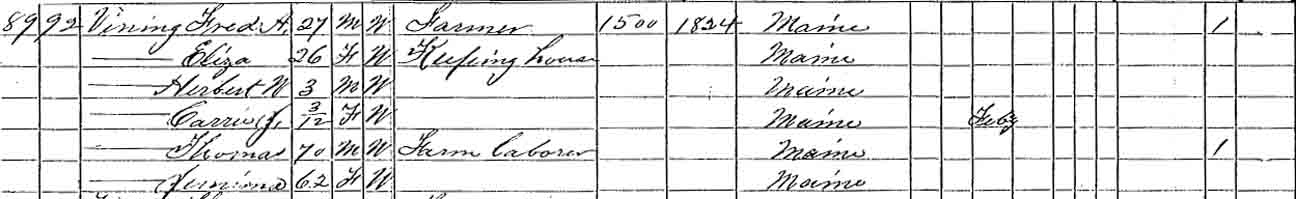 89 92 Vining Fred A. 27 M W Farmer 1500 1824 Maine 1
—— Eliza 26 F W Keeping house Maine
—— Herbert W 3 M W Maine
—— Carrie J. 3/12 F W Maine Feby
—— Thomas 70 M W Farm laborer Maine 1
—— Jemima 62 F W Maine